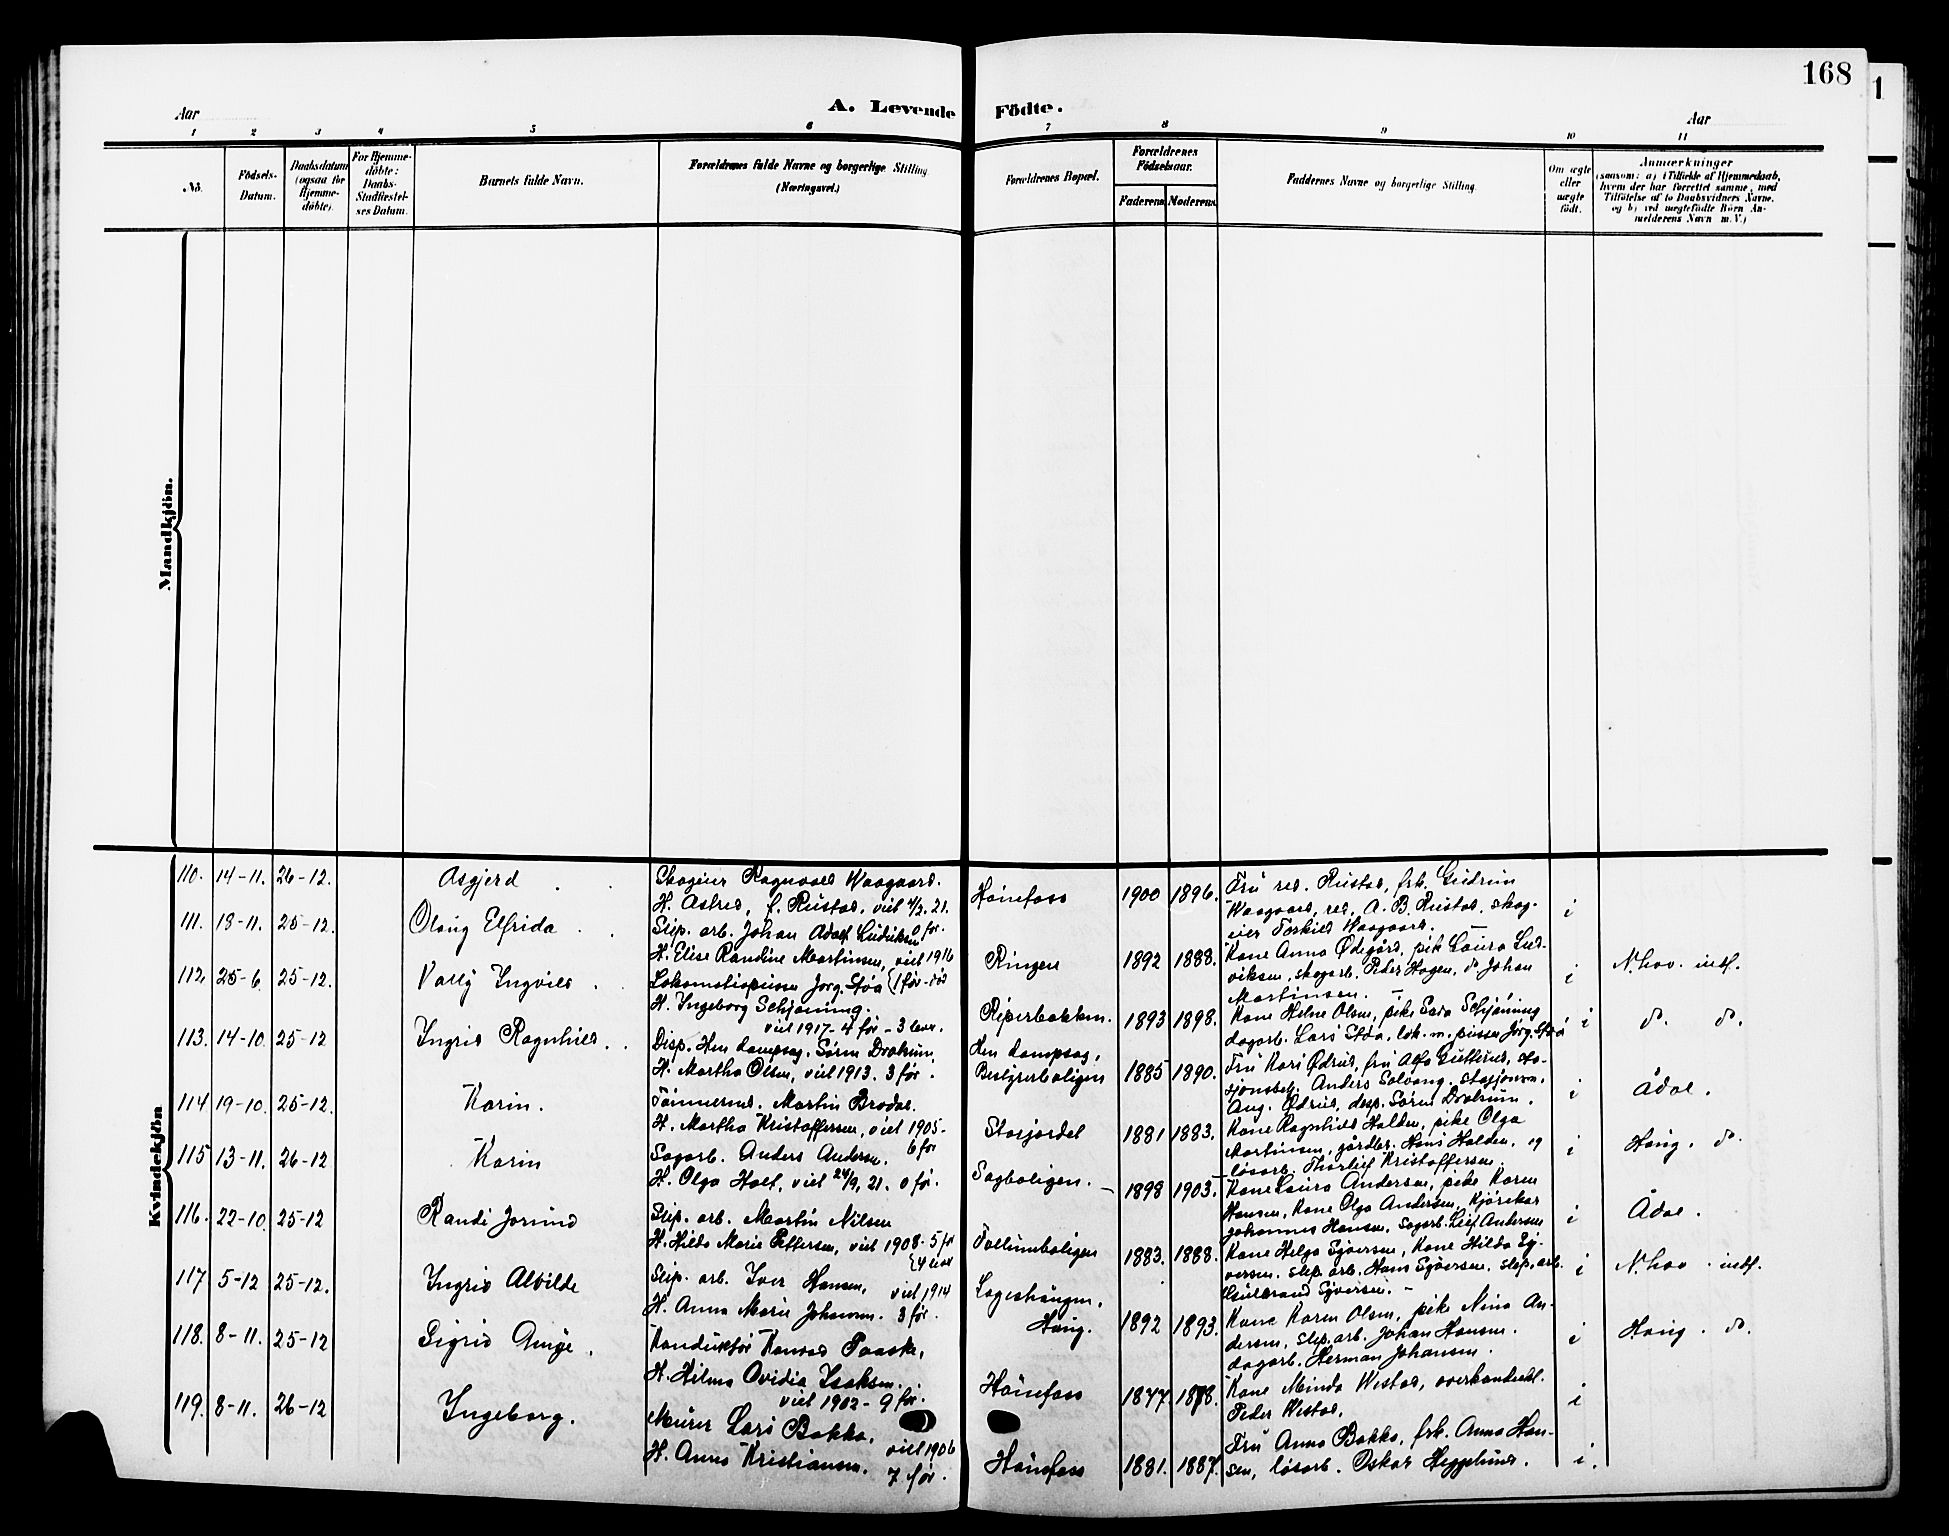 168
1
A. Levende Födte.
Aar
Aar
1 2 3 4 5 6 7 8 9 10 11
No. Födsels-Datum. Daabsdatum (ogsaa for Hjemme-döbte). For Hjemme-döbte: Daabs-Stadfæstel-ses Datum. Barnets fulde Navn. Forældrenes fulde Navne og borgerlige Stilling (Næringsvei.) Forældrenes Bopæl. Forældrenes Födselsaar. Faderens Moderens Faddernes Navne og borgerlige Stilling. Om ægte eller uægte födt. Anmærkninger (saasom: a) i Tilfælde af Hjemmedaab, hvem der har forrettet samme, med Tilföielse af to Daabsvidners Navne, og b) ved uægtefödte Börn An-melderens Navn m. V.)
Mandkjön.
Kvindekjön
110. 14-11. 26-12. Asgjerd Skogeier Ragnvald Waagaard.
H. Astrid, f. Rustad, viet 4/2. 21. 0 før.
Hønefoss 1900 1896. Fru red. Rustad, frk. Gudrun
Waagaard, red. A. B. Rustad, skog-
eier Torkild Waagaard. i
111. 18-11. 25-12. Olaug Elfrida Slip. arb. Johan Adolf Ludviksen
H. Elise Randine Martinsen, viet 1916
1 før-død
Ringen 1892 1888. Kone Anna Ødegård, pike Laura Lud-
viksen, skogarb. Peder Hagen, do Johan
Martinsen. i N.hov. indl.
112. 25-6. 25-12. Vally Ingvild Lokomotivpusser Jørg. Støa
H. Ingeborg Schjøning.
viet 1917-4 før-3 lever.
Riperbakken. 1893 1898. Kone Helene Olsen, pike Sara Schjøning
dagarb. Lars Støa, lok.m. pusser Jørg. Støa i do. do.
113. 14-10. 25-12 Ingrid Ragnhild Disp. Hen dampsag, Søren Drolsum,
H. Martha Olsen, viet 1913. 3 før.
Hen dampsag,
Bestyrerboligen 1885 1890. Fru Kari Ødrud, fru Alfa Gutterud, sta-
sjonsbetj. Anders Solvang, stasjonsm.
Aug. Ødrud, disp. Søren Drolsum. i Ådal.
114 19-10. 25-12. Karin. Tømmermd. Martin Brodal.
H. Martha Kristoffersen, viet 1905-
6 før
Storjordet 1881 1883. Kone Ragnhild Halden, pike Olga
Martinsen, gårdbr. Hans Halden, og
løsarb. Thorleif Kristoffersen. i Haug. do.
115 13-11. 26-12 Karin Sagarb. Anders Andersen.
H. Olga Holt, viet 24/9, 21. 0 før.
Sagboligen. 1898 1903. Kone Laura Andersen, pike Karen
Hansen, Kone Olga Andersen, Kjørekar
Johannes Hansen, sagarb. Leif Andersen i Ådal.
116. 22-10. 25-12 Randi Jorund Slip. arb. Martin Nilsen
H. Hilda Marie Pettersen, viet 1908-5 før
Follumboligen 1883. 1888. Kone Helga Syversen, Kone Hilda Sy-
versen, slip. arb. Hans Syversen, slip. arb.
Gulbrand Syversen. i N.hov. indl.
117 5-12 25-12. Ingrid Alvilde Slip. arb. Iver Hansen, viet 1914
H. Anna Marie Johansen. 3 før.
Lageshaugen,
Haug. 1892 1893. Kone Karen Olsen, pike Nina An-
dersen, slip. arb. Johan Hansen.
dagarb. Herman Johansen. i Haug. do.
118. 8-11. 25-12 Sigrid Aagje Konduktør Konrad Paaske,
H. Hilma Ovidia Isaksen.
viet 1902-9 før.
Hønefoss 1877 1878. Kone Minda Westad, overkonstbl.
Peder Westad. i
119. 8-11. 26-12 Ingeborg. Murer Lars Bakka,
H. Anna Kristiansen. viet 1906
7 før.
Hønefoss 1881. 1887. Fru Anna Bakka, frk. Anna Han-
sen, løsarb. Oskar Heggelund. i.